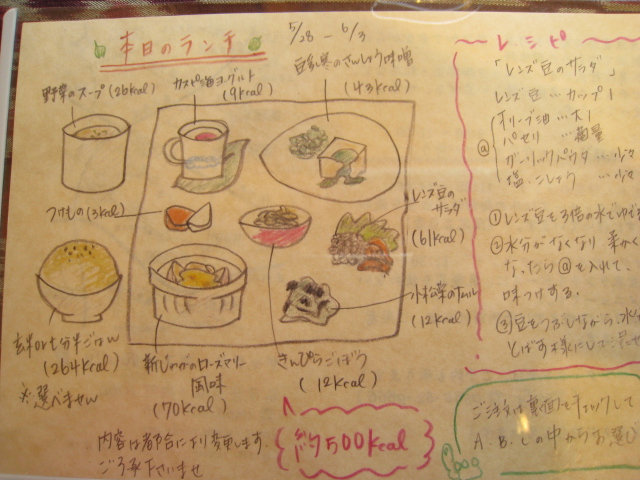 本日のランチ
5/28 - 6/3
野菜のスープ (26kcal)
カスピ海ヨグルト
(9kcal)
(43kcal)
つけもの (3kcal)
レンズ豆の
サラダ
(61kcal)
小松菜のナムル
(12kcal)
玄米or七分半ごはん
(264kcal)
※選べません
新じゃがのローズマリー
風味
(70kcal)
きんぴらごぼう
(12kcal)
約500kcal
内容は都合により変更します。
ご了承下さいませ
レシピ
「レンズ豆のサラダ」
レンズ豆…カップ1
ⓐ
オリーブ油…大1
パセリ…適量
ガーリックパウダ…少々
塩・こしょう…少々
①レンズ豆を3倍の水でゆで
②水分がなくなり柔かく
なったらⓐを入れて、
味つけする。
③豆をつぶしながら、水
とばす様に
ご注文は裏面をチェックして
A.B.Cの中からお選び